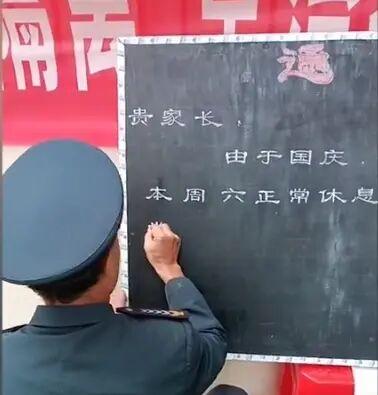 隔离
通
贵家长，
由于国庆，
本周六正常休息